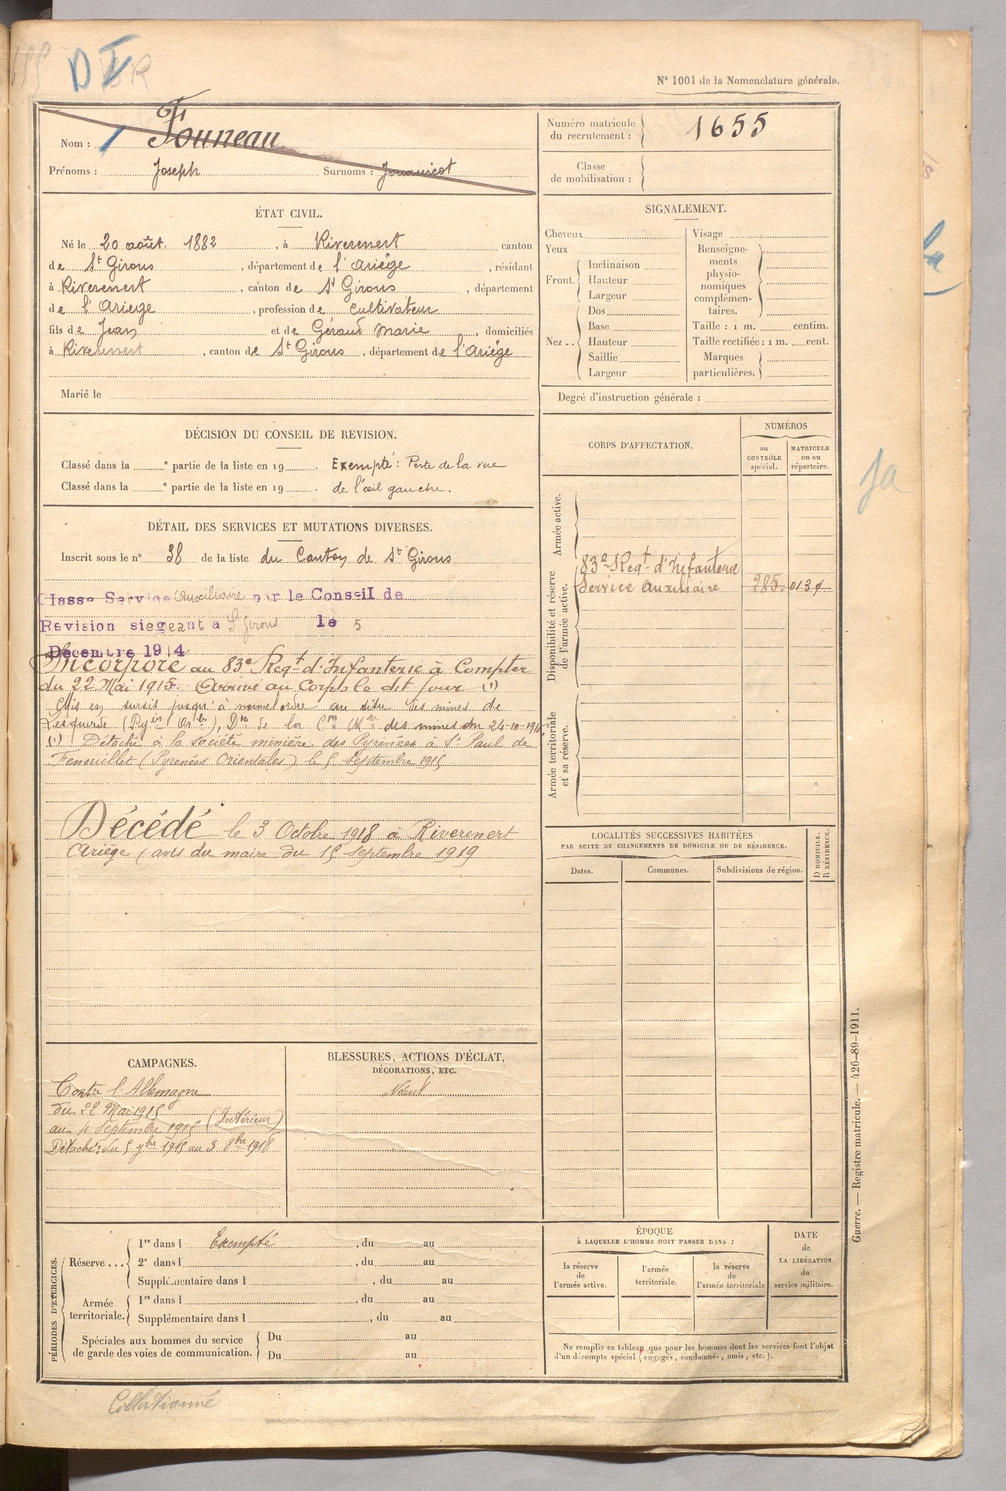 DI
N° 1001 de la Nomenclature générale.
Nom : Founeau
Prénoms : Joseph Surnoms : Jouanicot
Numéro matricule du recrutement : 1655
Classe de mobilisation :
ÉTAT CIVIL.
Né le 20 août 1882, à Riverenert canton
de St Girons, département de l'Ariège, résidant
à Riverenert, canton de St Girons, département
de l'Ariège, profession de cultivateur
fils de Jean et de Géraud Marie, domiciliés
à Riverenert, canton de St Girons, département de l'Ariège
Marié le
SIGNALEMENT.
Cheveux
Yeux
Front. Inclinaison
Hauteur
Largeur
Nez .. Dos
Base
Hauteur
Saillie
Largeur
Visage
Renseigne-
ments
physio-
nomiques
complémen-
taires.
Taille : 1 m. centim.
Taille rectifiée : 1 m. cent.
Marques
particulières.
Degré d'instruction générale :
DÉCISION DU CONSEIL DE REVISION.
Classé dans la e partie de la liste en 19 . Exempté : Perte de la vue
Classé dans la e partie de la liste en 19 . de l'œil gauche.
DÉTAIL DES SERVICES ET MUTATIONS DIVERSES.
Inscrit sous le n° 38 de la liste du Canton de St Girons
Classe Service Auxiliaire par le Conseil de
Revision siegeant a St Girons le 5
Décembre 1914
Incorporé au 83e Régt d'Infanterie à Compter
du 22 Mai 1915. Arrivé au Corps le dit jour (1)
Mis en sursis jusqu'à nouvel ordre au titre des mines de
Lesquerde
des mines du 24-10-191
(1) Détaché à la Société minière des Pyrénées à St Paul de
Fenouillet (Pyrénées Orientales) le 5 Septembre 1915
Décédé le 3 Octobre 1918 à Riverenert
Ariège (avis du maire du 15 Septembre 1919
CORPS D'AFFECTATION.
NUMÉROS
au CONTRÔLE spécial.
MATRICULE ou au répertoire.
Armée active.
Disponibilité et réserve de l'armée active.
83e Régt d'Infanterie
Service Auxiliaire 285 0139
Armée territoriale et sa réserve.
LOCALITÉS SUCCESSIVES HABITÉES
PAR SUITE DE CHANGEMENTS DE DOMICILE OU DE RÉSIDENCE.
Dates. Communes. Subdivisions de région. D DOMICILE. R RÉSIDENCE.
CAMPAGNES.
Contre l'Allemagne
du 22 Mai 1915
au 4 Septembre 1915 (Intérieur)
Détaché du 5 7bre 1915 au 3 8bre 1918
BLESSURES, ACTIONS D'ÉCLAT,
DÉCORATIONS, ETC.
Néant
PÉRIODES D'EXERCICES.
Réserve ... 1re dans l Exempté, du au
2e dans l , du au
Supplémentaire dans l , du au
Armée territoriale. 1re dans l , du au
Supplémentaire dans l , du au
Spéciales aux hommes du service
de garde des voies de communication. Du au
Du au
ÉPOQUE
À LAQUELLE L'HOMME DOIT PASSER DANS :
la réserve de l'armée active.
l'armée territoriale.
la réserve de l'armée territoriale
DATE
de
LA LIBÉRATION
du
service militaire.
Ne remplir ce tableau que pour les hommes dont les services font l'objet
d'un décompte spécial (engagés, condamnés, omis, etc.).
Guerre. — Registre matricule. — 426-89-1911.
Collationné